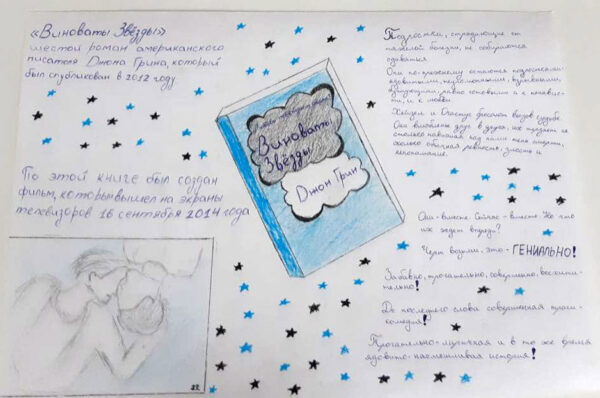 «Виноваты Звёзды»
шестой роман американского
писателя Джона Грина, который
был опубликован в 2012 году.
По этой книге был создан
фильм, который вышел на экраны
телевизоров 16 сентября 2014 года
Виноваты
Звёзды
Джон Грин
Подростки, страдающие от
тяжелой болезни, не собираются
сдаваться.
Они по-прежнему остаются подростками:
ядовитыми, неугомонными, взрывными,
бунтующими, равно готовыми и к ненавис-
ти, и к любви.
Хейзел и Огастус бросают вызов судьбе.
Они влюблены друг в друга, их терзает не
столько нависшая над ними тень смерти,
сколько обычная ревность, злость и
непонимание.
Они - вместе. Сейчас - вместе. Но что
их ждет впереди?
Черт возьми, это - ГЕНИАЛЬНО!
Забавно, трогательно, совершенно, восхити-
тельно!
До последнего слова совершенная траги-
комедия!
Трогательно-лиричная и в то же время
ядовито-насмешливая история!